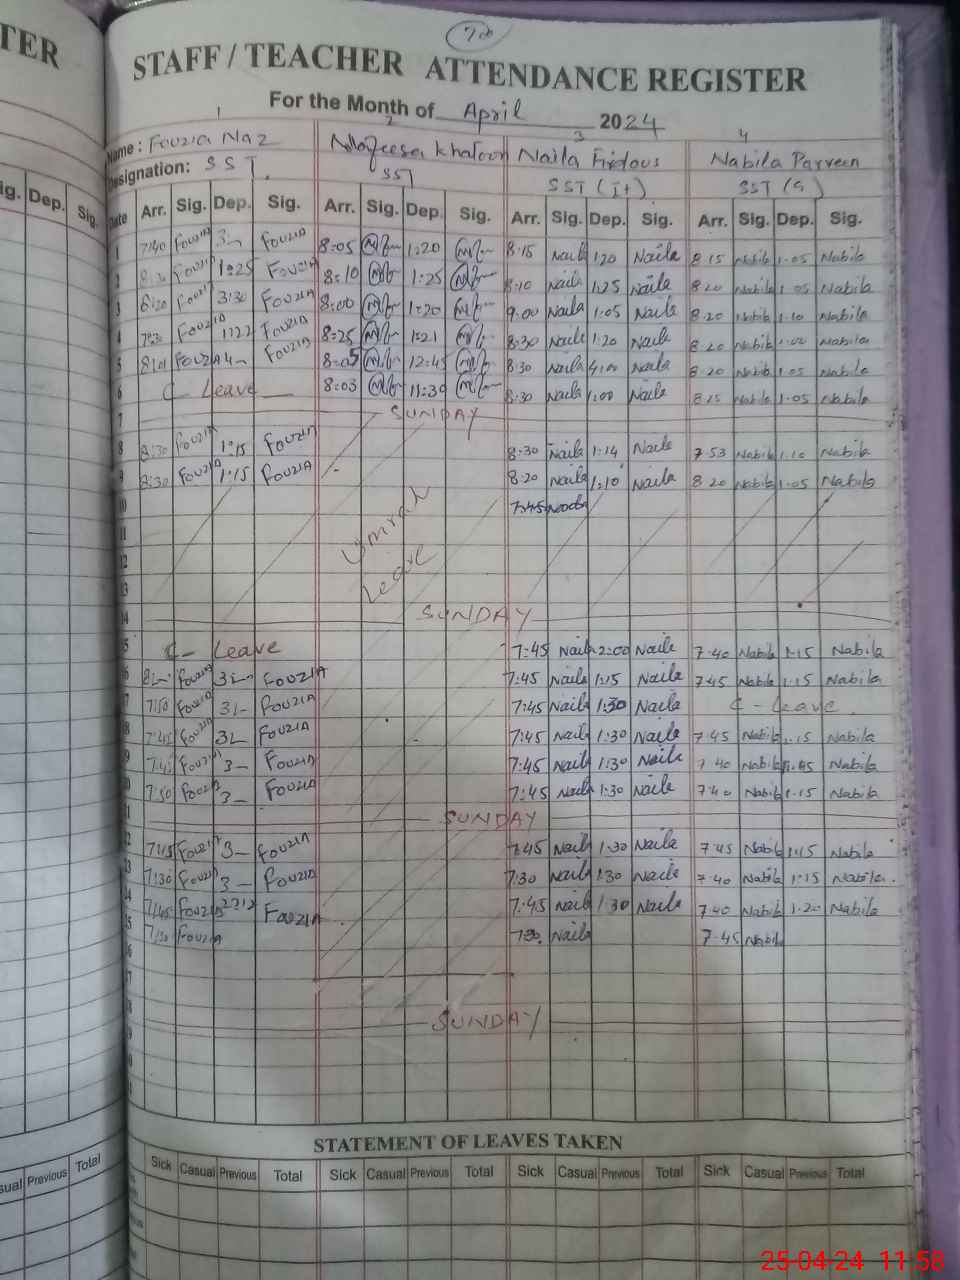 TER
70
STAFF / TEACHER ATTENDANCE REGISTER
For the Month of April 2024
1 2 3 4
Name: Fouzia Naz Nafeesa Khatoon Naila Firdous Nabila Parveen
Designation: SST. SST SST (IT) SST (G)
ig. Dep. Sig. Date Arr. Sig. Dep. Sig. Arr. Sig. Dep. Sig. Arr. Sig. Dep. Sig. Arr. Sig. Dep. Sig.
1 7:40 Fouzia 3- Fouzia 8:05 1:20 8:15 Naila 1:20 Naila 8.15 Nabila 1.05 Nabila
2 8:30 Fouzia 1:25 Fouzia 8:10 1:25 8:10 Naila 1:25 Naila 8.20 Nabila 1.05 Nabila
3 8:20 Fouzia 3:30 Fouzia 8:00 1:20 9:00 Naila 1:05 Naila 8.20 Nabila 1.10 Nabila
4 7:30 Fouzia 1:22 Fouzia 8:25 1:21 8:30 Naila 1:20 Naila 8.20 Nabila 1.00 Nabila
5 8:01 Fouzia 4- Fouzia 8:05 12:45 8:30 Naila 4:00 Naila 8.20 Nabila 1.05 Nabila
6 C- Leave 8:03 11:30 8:30 Naila 1:00 Naila 8.15 Nabila 1.05 Nabila
7 SUNDAY
8 8:30 Fouzia 1:15 Fouzia 8:30 Naila 1:14 Naila 7.53 Nabila 1.10 Nabila
9 8:30 Fouzia 1:15 Fouzia 8:20 Naila 1:10 Naila 8.20 Nabila 1.05 Nabila
10 7:45
11 Umrah
12 Leave
13
14 SUNDAY
5 C- Leave 7:45 Naila 2:00 Naila 7.40 Nabila 1.15 Nabila
6 8- Fouzia 3- Fouzia 7:45 Naila 1:15 Naila 7.45 Nabila 1.15 Nabila
7 7:50 Fouzia 3- Fouzia 7:45 Naila 1:30 Naila C- Leave
8 7:45 Fouzia 3- Fouzia 7:45 Naila 1:30 Naila 7.45 Nabila 1.15 Nabila
9 7:45 Fouzia 3- Fouzia 7:45 Naila 1:30 Naila 7.40 Nabila 1.45 Nabila
0 7:50 Fouzia 3- Fouzia 7:45 Naila 1:30 Naila 7.40 Nabila 1.15 Nabila
1 SUNDAY
2 7:45 Fouzia 3- Fouzia 7:45 Naila 1:30 Naila 7.45 Nabila 1:15 Nabila
23 7:30 Fouzia 3- Fouzia 7:30 Naila 1:30 Naila 7.40 Nabila 1:15 Nabila
24 7:45 Fouzia Fouzia 7:45 Naila 1:30 Naila 7.40 Nabila 1.20 Nabila
25 7:30 Fouzia 7:30 Naila 7.45 Nabila
6
7
8 SUNDAY
9
STATEMENT OF LEAVES TAKEN
sual Previous Total Sick Casual Previous Total Sick Casual Previous Total Sick Casual Previous Total Sick Casual Previous Total
25-04-24 11:58